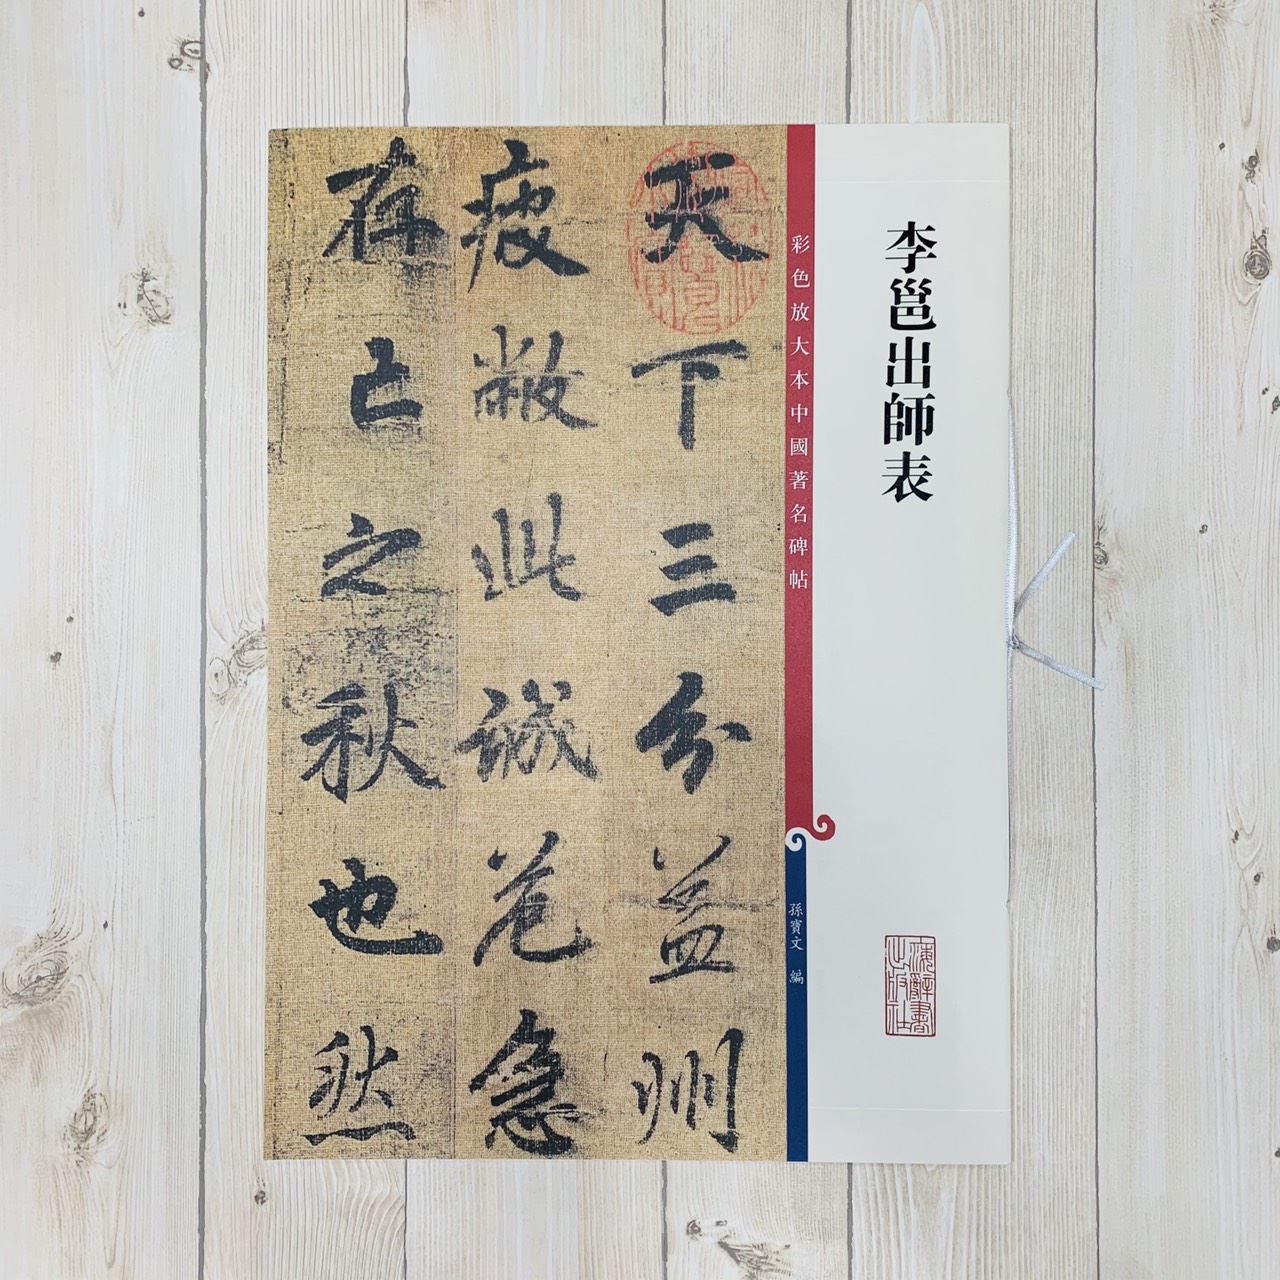 李邕出師表
彩色放大本中國著名碑帖
孫寶文 編
海辭書
出版社
天下三分益州
疲敝此誠危急
存亡之秋也然